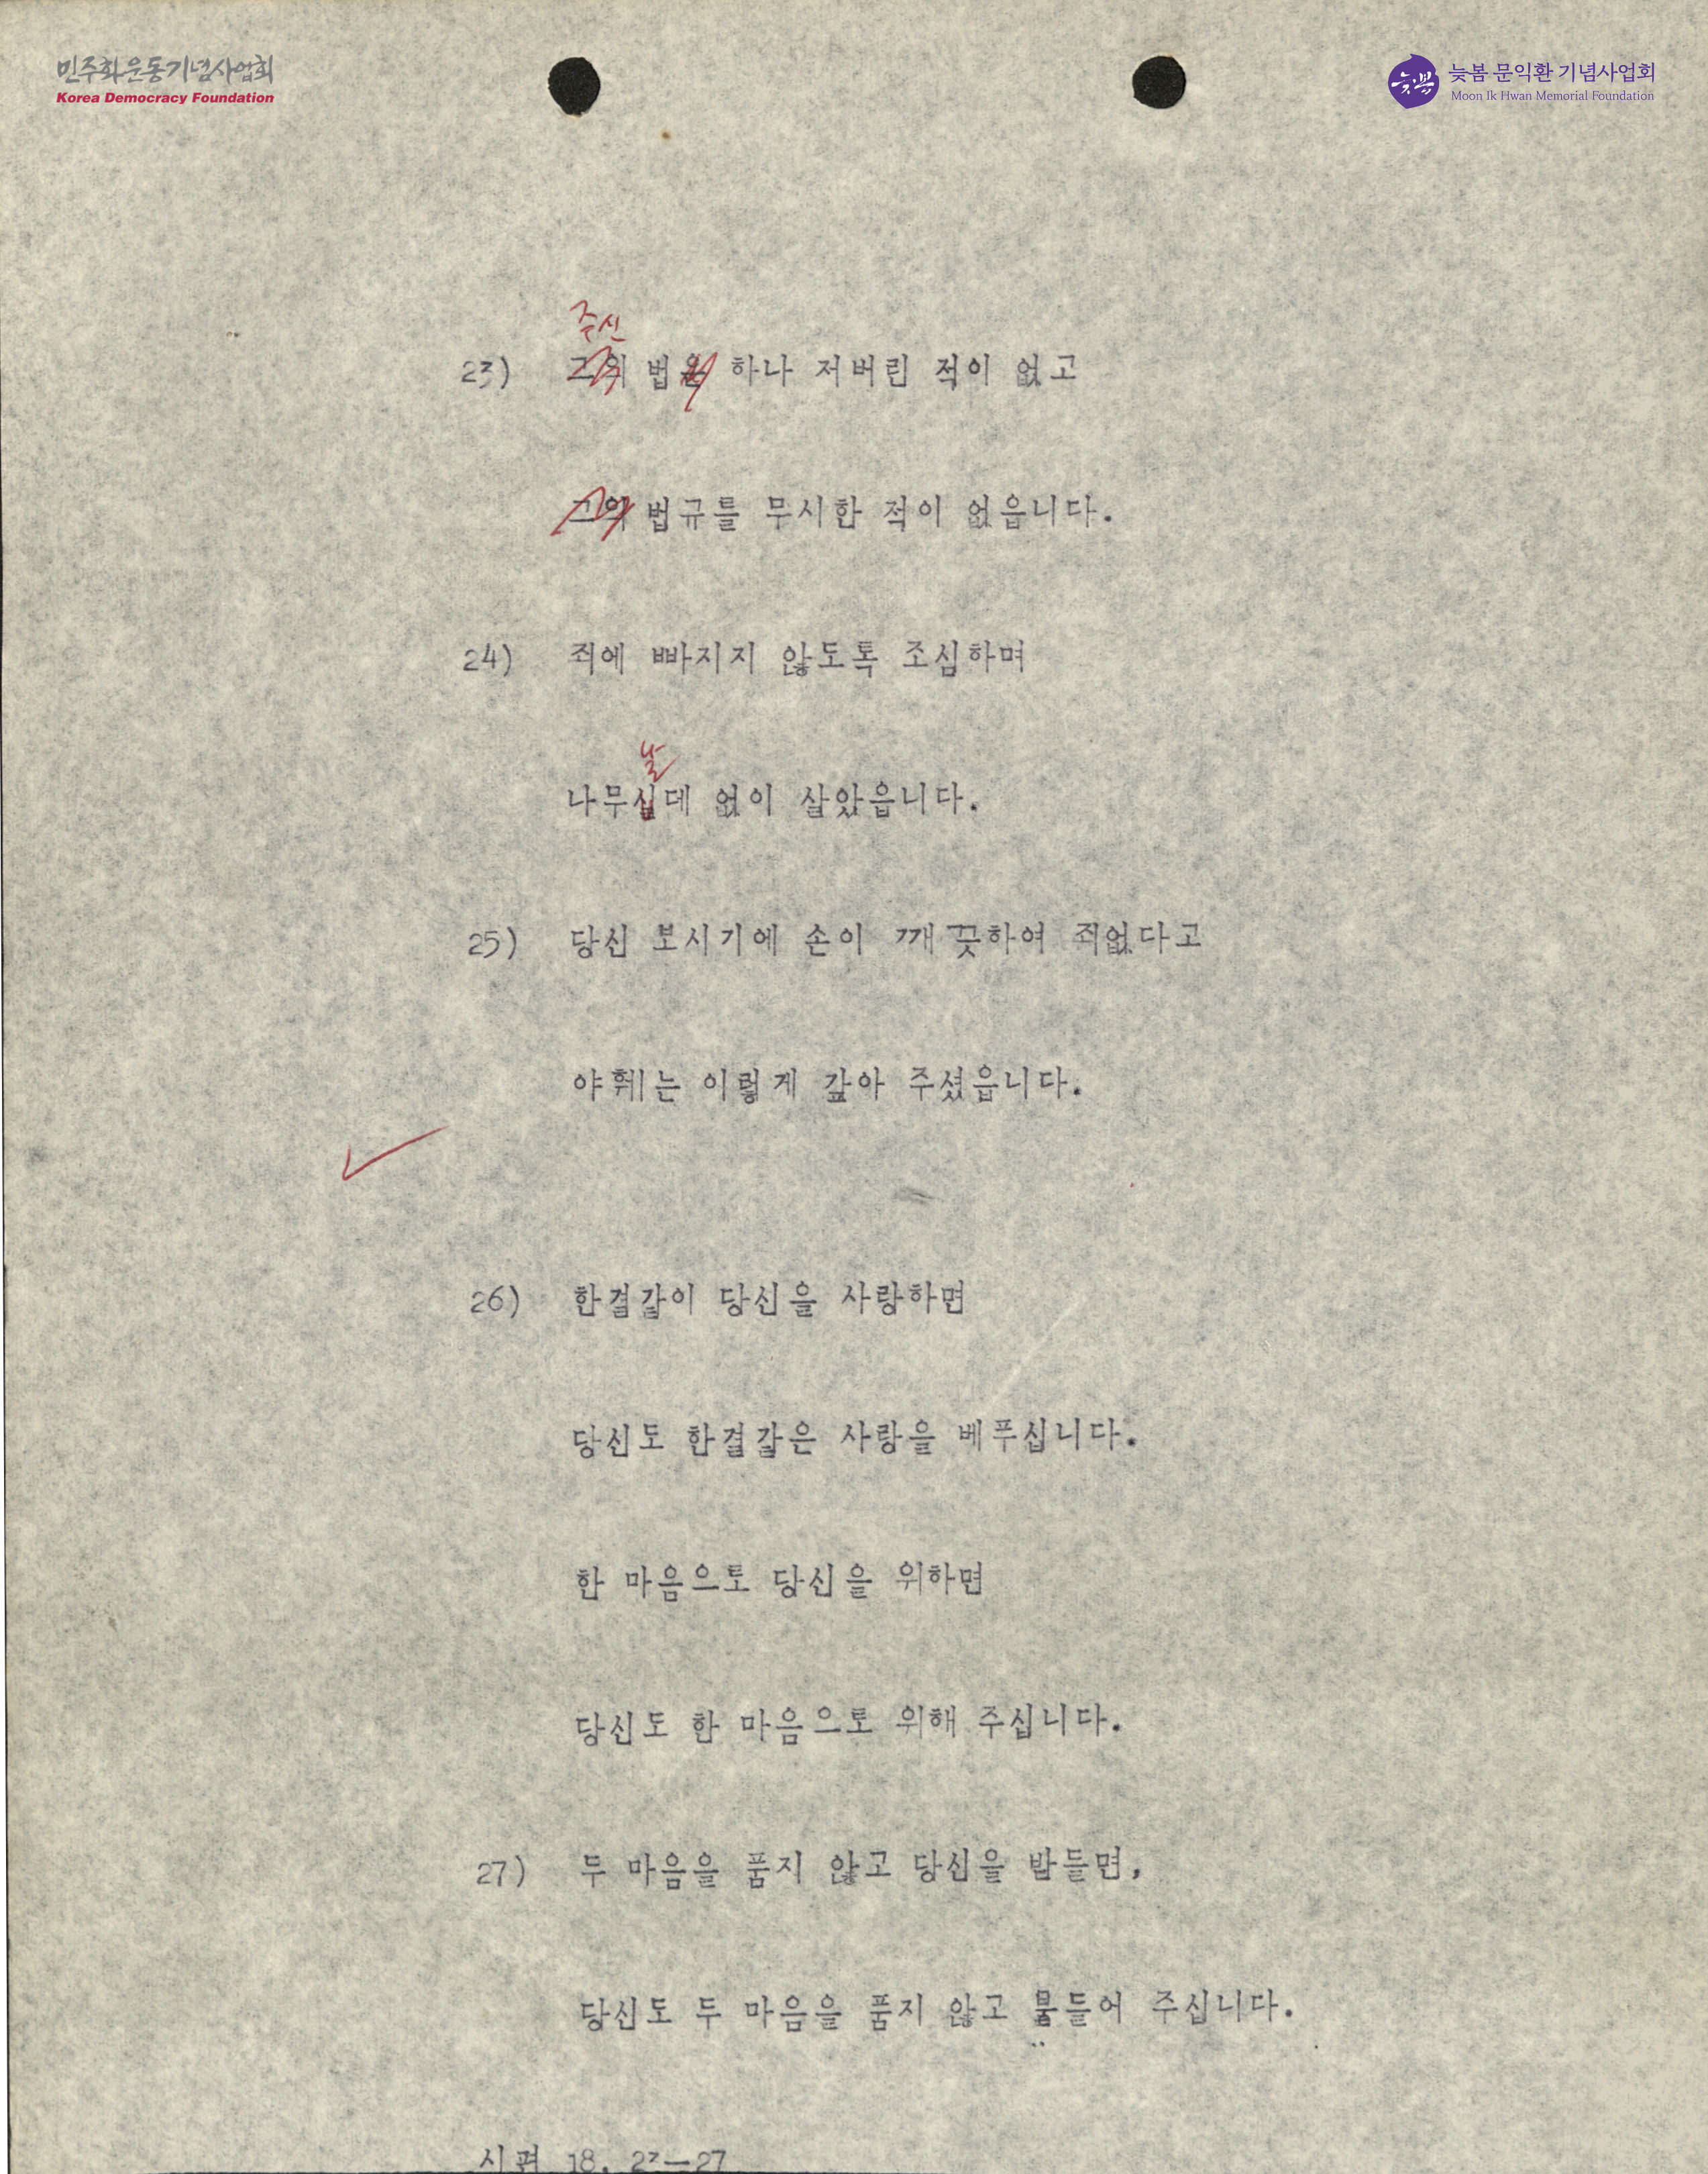 민주화운동기념사업회
Korea Democracy Foundation
늦봄
늦봄 문익환 기념사업회
Moon Ik Hwan Memorial Foundation
주신
23) 그의 법은 하나 저버린 적이 없고
그의 법규를 무시한 적이 없읍니다.
24) 죄에 빠지지 않도록 조심하며
날
나무십데 없이 살았읍니다.
25) 당신 보시기에 손이 깨끗하여 죄없다고
야훼는 이렇게 갚아 주셨읍니다.
26) 한결같이 당신을 사랑하면
당신도 한결같은 사랑을 베푸십니다.
한 마음으로 당신을 위하면
당신도 한 마음으로 위해 주십니다.
27) 두 마음을 품지 않고 당신을 받들면,
당신도 두 마음을 품지 않고 붙들어 주십니다.
시편 18. 23—27